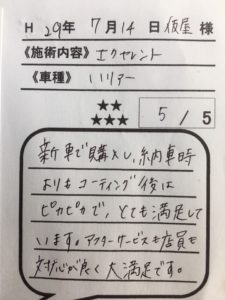 H 29年 7月14日 仮屋 様
《施術内容》エクセレント
《車種》ハリアー
★★
★★★
5 / 5
新車で購入し、納車時
よりもコーティング後は
ピカピカで、とても満足して
います。アフターサービスも店員も
対応が良く大満足です。